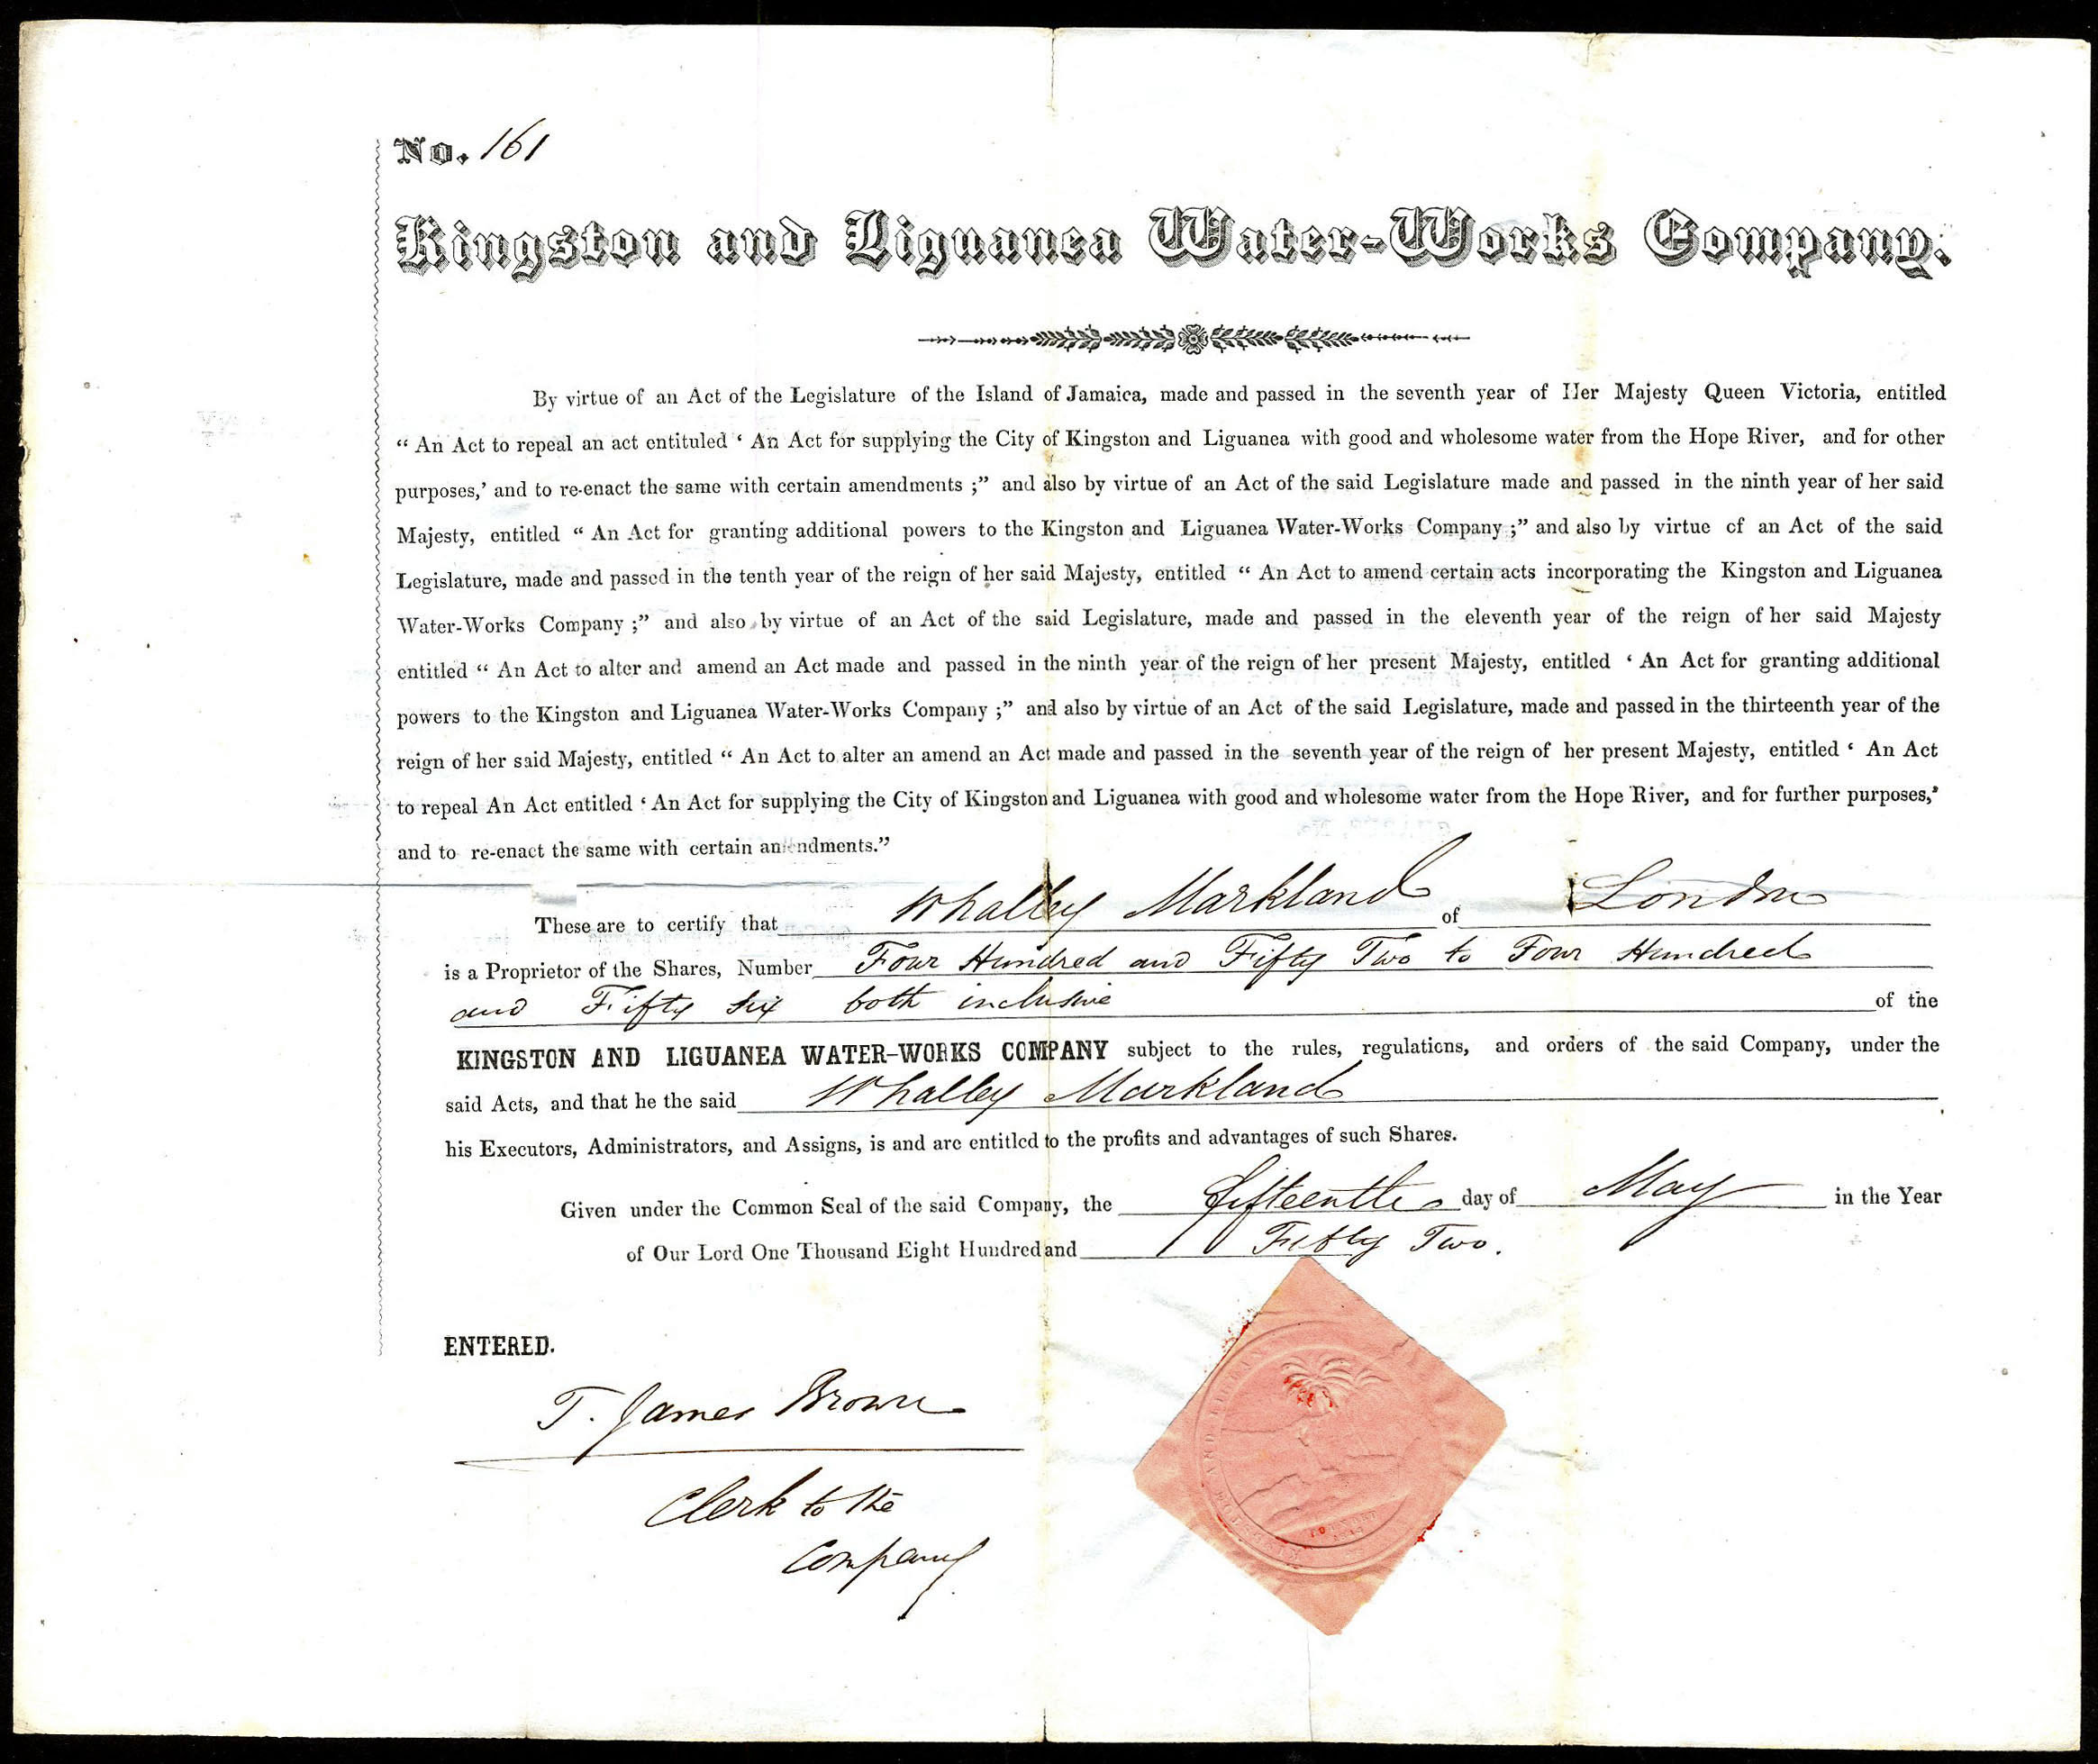 No. 161
Kingston and Liguanea Water-Works Company.
By virtue of an Act of the Legislature of the Island of Jamaica, made and passed in the seventh year of Her Majesty Queen Victoria, entitled
“ An Act to repeal an act entituled ‘ An Act for supplying the City of Kingston and Liguanea with good and wholesome water from the Hope River, and for other
purposes,’ and to re-enact the same with certain amendments ;” and also by virtue of an Act of the said Legislature made and passed in the ninth year of her said
Majesty, entitled “ An Act for granting additional powers to the Kingston and Liguanea Water-Works Company ;” and also by virtue of an Act of the said
Legislature, made and passed in the tenth year of the reign of her said Majesty, entitled “ An Act to amend certain acts incorporating the Kingston and Liguanea
Water-Works Company ;” and also by virtue of an Act of the said Legislature, made and passed in the eleventh year of the reign of her said Majesty
entitled “ An Act to alter and amend an Act made and passed in the ninth year of the reign of her present Majesty, entitled ‘ An Act for granting additional
powers to the Kingston and Liguanea Water-Works Company ;” and also by virtue of an Act of the said Legislature, made and passed in the thirteenth year of the
reign of her said Majesty, entitled “ An Act to alter an amend an Act made and passed in the seventh year of the reign of her present Majesty, entitled ‘ An Act
to repeal An Act entitled ‘ An Act for supplying the City of Kingston and Liguanea with good and wholesome water from the Hope River, and for further purposes,’
and to re-enact the same with certain amendments.”
These are to certify that Whalley Markland of London
is a Proprietor of the Shares, Number Four Hundred and Fifty Two to Four Hundred
and Fifty Six both inclusive of the
KINGSTON AND LIGUANEA WATER-WORKS COMPANY subject to the rules, regulations, and orders of the said Company, under the
said Acts, and that he the said Whalley Markland
his Executors, Administrators, and Assigns, is and are entitled to the profits and advantages of such Shares.
Given under the Common Seal of the said Company, the fifteenth day of May in the Year
of Our Lord One Thousand Eight Hundred and Fifty Two.
ENTERED.
T. James Brown
Clerk to the
Company